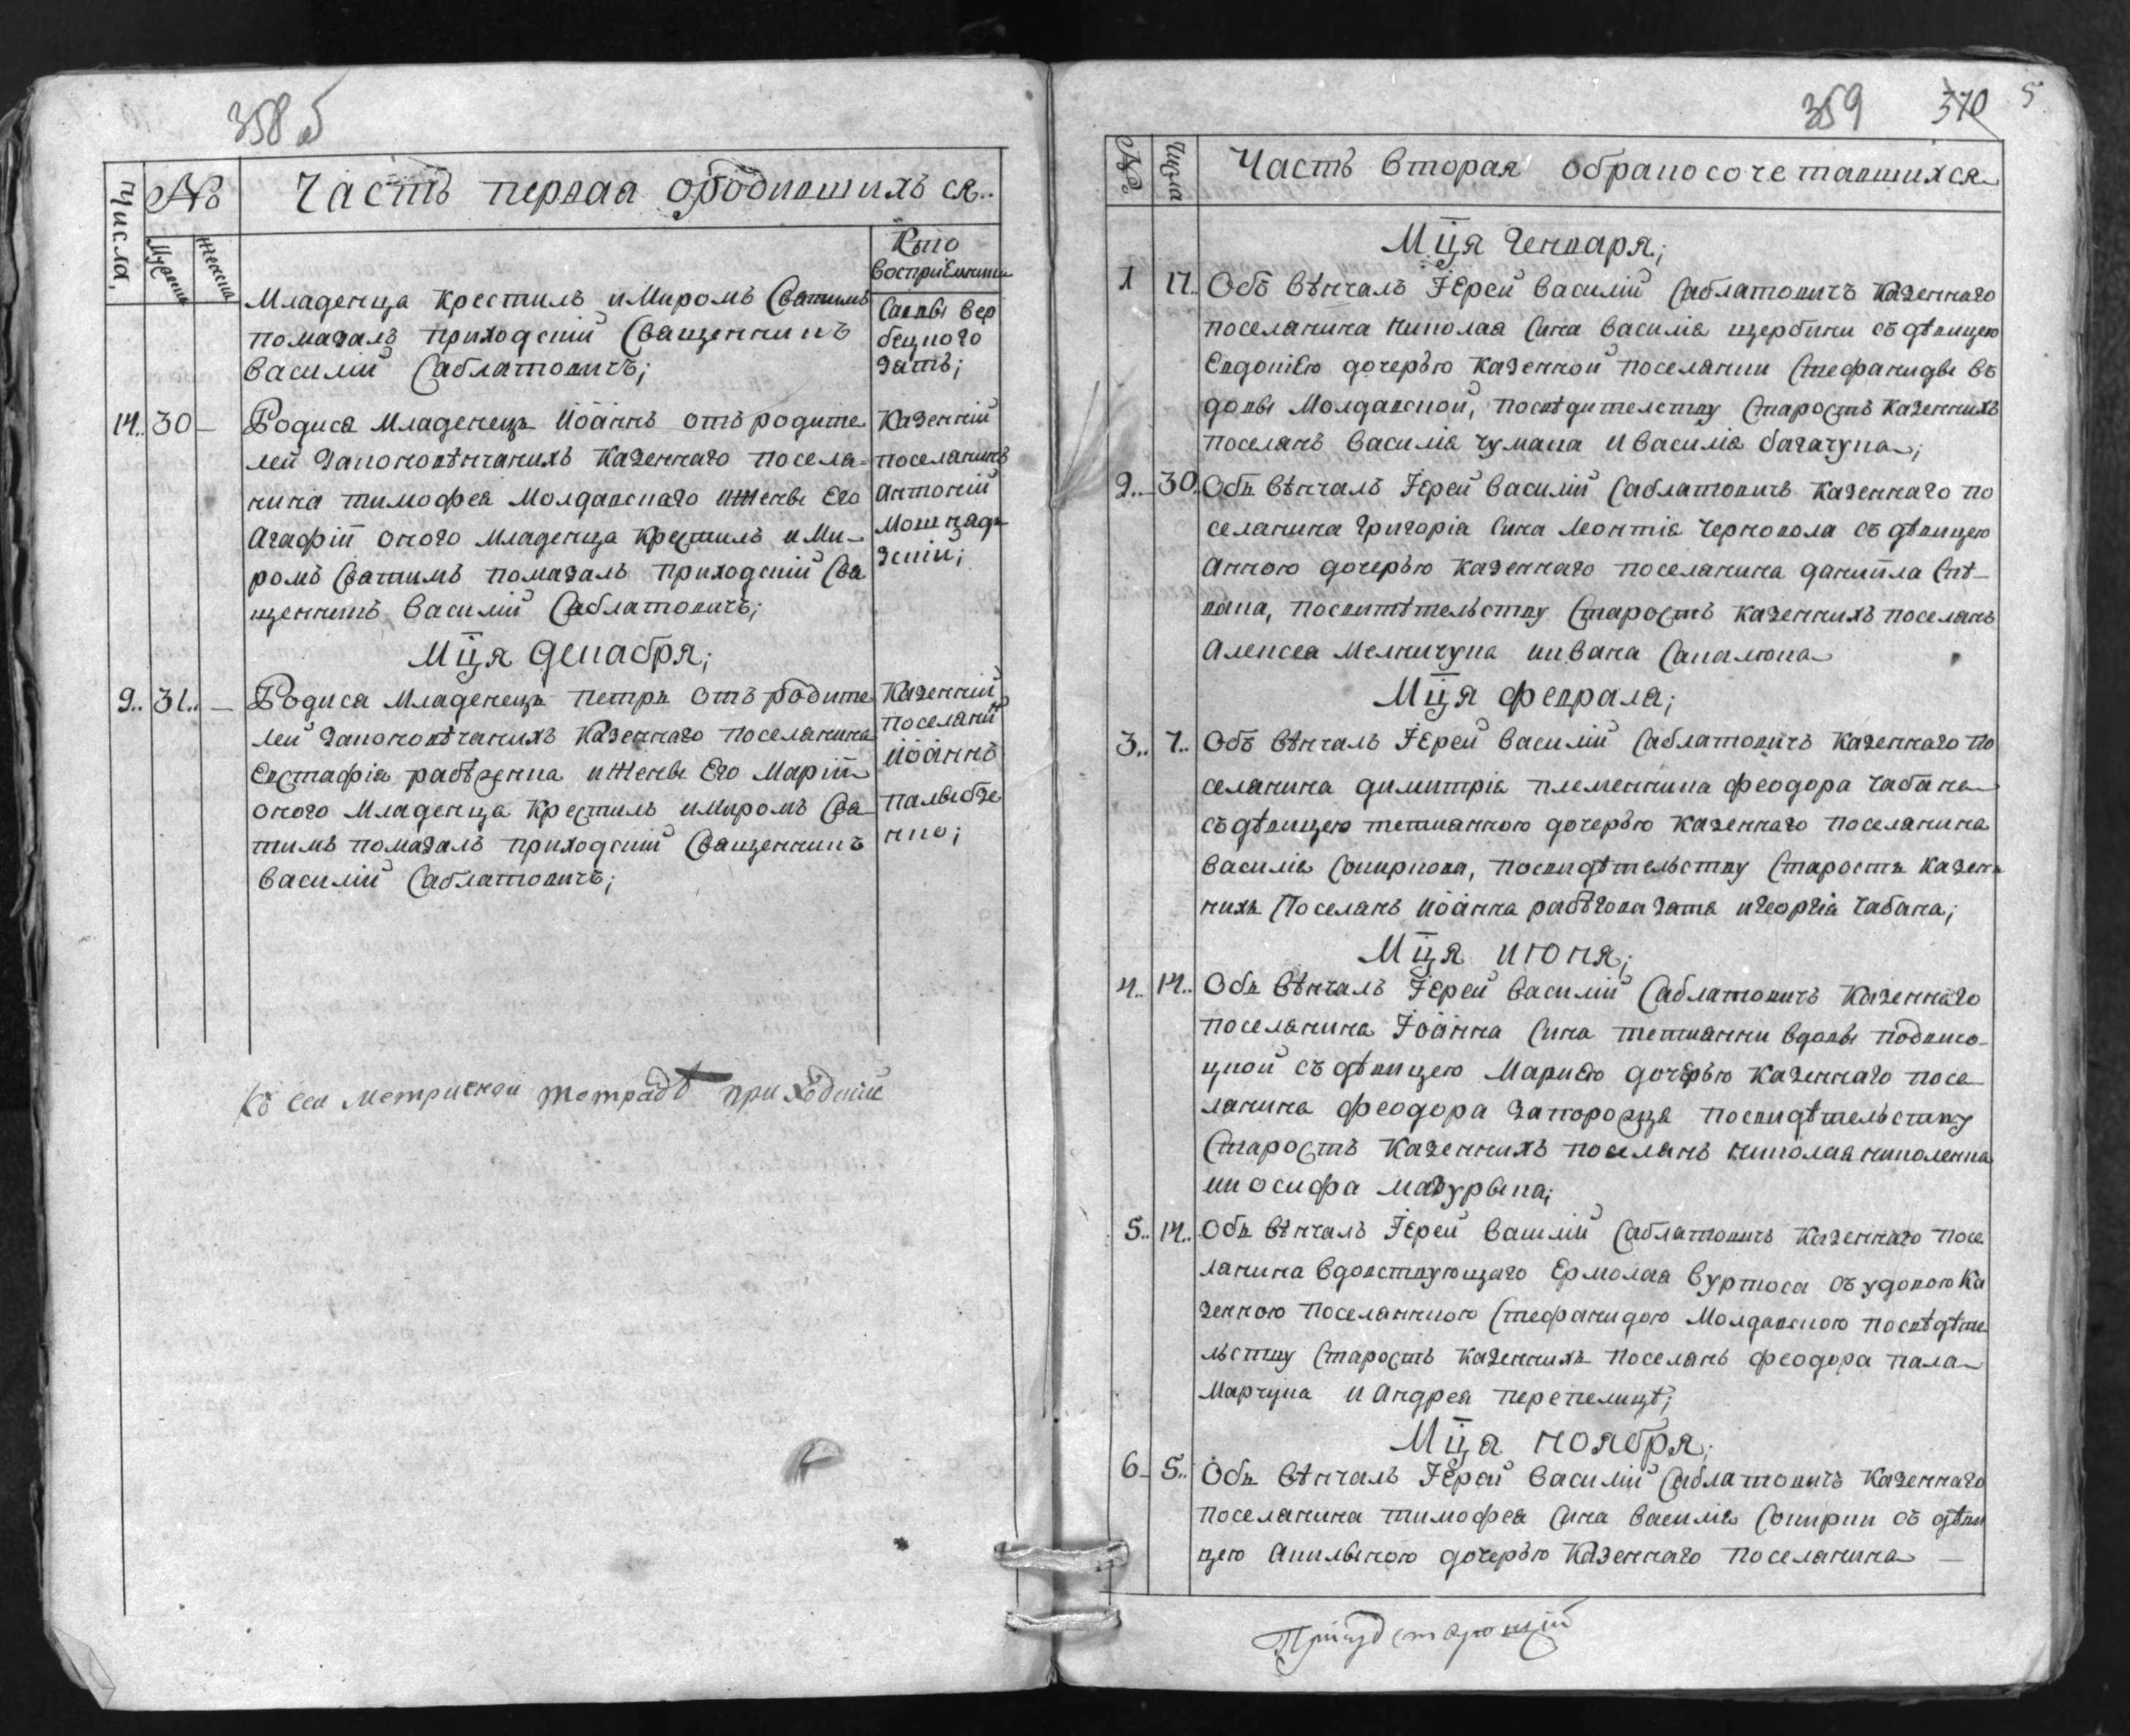 358 б
Числа,
№
Часть первая ородившихъ ся..
Мужеска
Женска
Кто
восприемники
Младенца крестилъ и Миромъ Святимъ
помазалъ приходскій Священникъ
Василій Саблатовичъ;
Саввы Вер
бецкого
зять;
14.. 30 —
Родися Младенецъ Іоаннъ отъ родите
лей законовѣнчанихъ казеннаго поселя-
нина Тимофея Молдавскаго и Жены Его
Агафіи оного Младенца крестилъ и Ми-
ромъ Святимъ помазалъ приходскій Свя
щенникъ Василій Саблатовичъ;
Казенній
поселянинъ
Антоній
Мца Декабря;
9.. 31.. —
Родися Младенецъ Петръ отъ родите
лей законовѣчанихъ казеннаго поселянина
Евстафія и Жены Его Маріи
оного Младенца крестилъ и Миромъ Свя
тимъ помазалъ приходскій Священникъ
Василій Саблатовичъ;
Казенній
поселяни
Іоаннъ
Къ сей Метрической тетрадѣ приходскій
359 370 5
№
Числа
Часть вторая обракосочетавшихся
Мця Генваря;
1 17.. Объ вѣнчалъ Іерей Василій Саблатовичъ казеннаго
поселянина Николая Сина Василія Щербини съ дѣвицею
Евдокіею дочерью казенной поселянки Стефаниды в
довы Молдавской, посвѣдителству Старостъ казеннихъ
поселянъ Василія Чумака и Василія Багачука;
2.. 30. Объ вѣнчалъ Іерей Василій Саблатовичъ казеннаго по
селянина Григорія Сина Леонтія Чорновола съ дѣвицею
Анною дочерью казеннаго поселянина Даниила Спѣ-
вака, посвитѣтельству Старостъ казеннихъ поселянъ
Алексея Мелничука и Ивана Сапалюка
Мця Февраля;
3.. 7.. Объ вѣнчалъ Іерей Василій Саблатовичъ казеннаго по
селянина Димитрія племенника Феодора Чабана
съ дѣвицею Тетианною дочерью казеннаго поселянина
Василія Спиркова, посвидѣтельству Старостъ казен
нихъ Поселянъ Іоанна зятя и Георгія Чабана;
Мця Июня;
4.. 14.. Объ вѣнчалъ Іерей Василій Саблатовичъ казеннаго
поселянина Іоанна Сина Тетианни вдовы Подвисо-
цкой съ дѣвицею Мариею дочерью казеннаго посе
лянина Феодора Запорозца посвидѣтельству
Старостъ казеннихъ поселянъ Николая Николенка
и Иосифа Мазурыка;
5.. 14.. Объ вѣнчалъ Іерей Василій Саблатовичъ казеннаго посе
лянина вдовствующаго Ермолая Буртоса съ удовою ка
зенною поселянкою Стефанидою Молдавскою посвѣдѣте
льству Старостъ казеннихъ поселянъ Феодора Пала
Марчука и Андрея Перепелицѣ;
Мця Ноября;
6. 5.. Объ вѣнчалъ Іерей Василій Саблатовичъ казеннаго
поселянина Тимофея Сина Василія Спирки съ дѣви
цею Акилыною дочерью казеннаго поселянина —